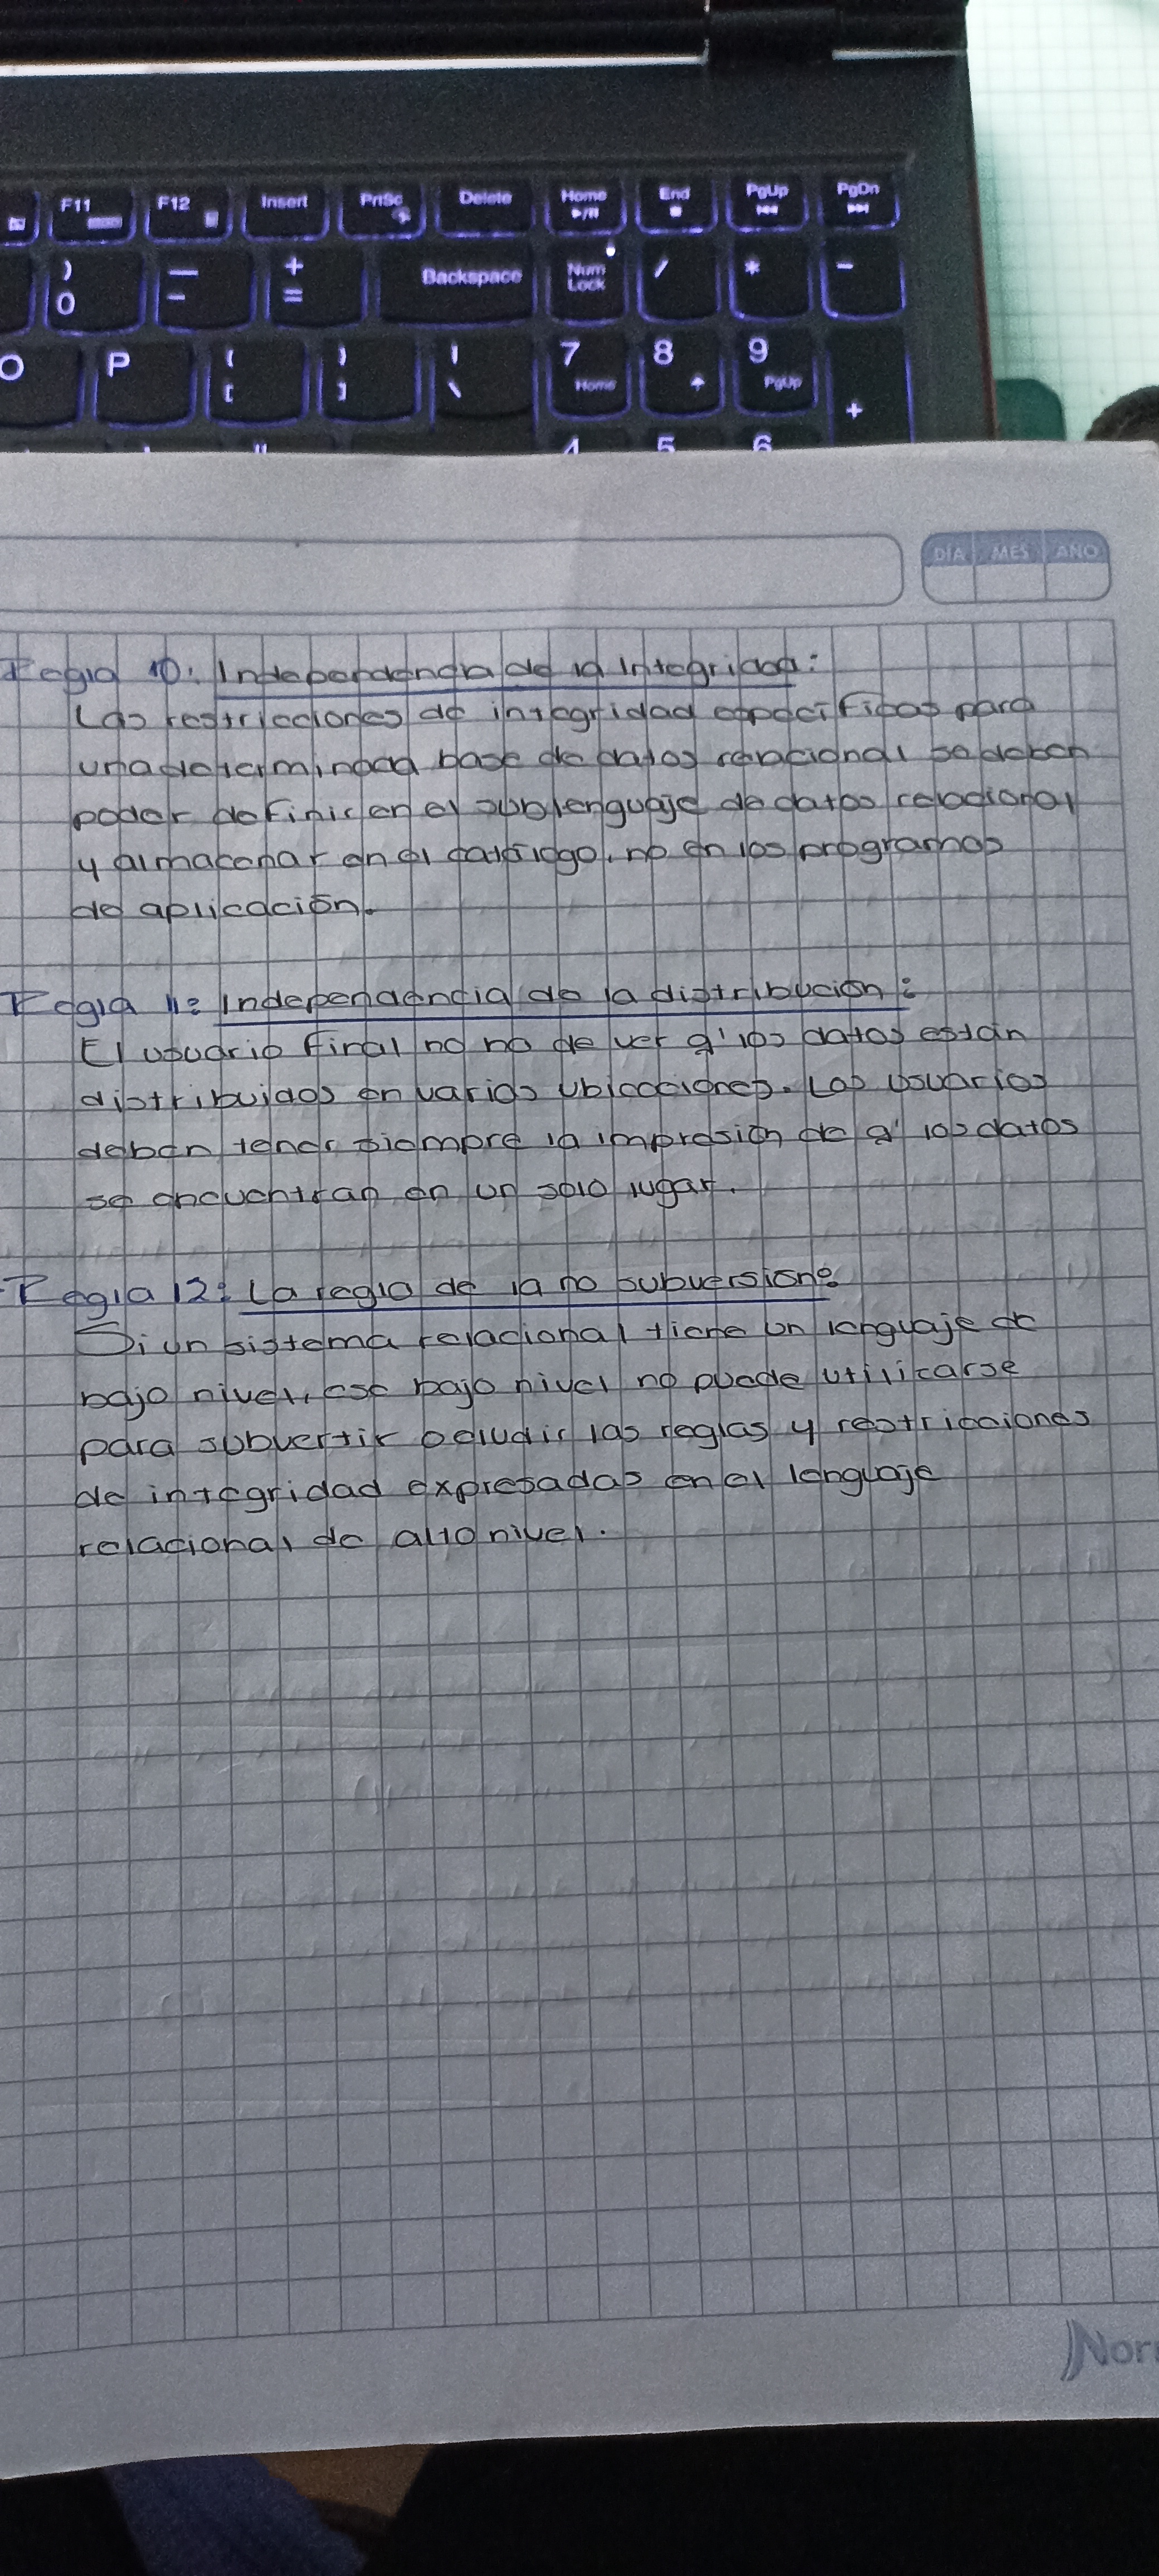 F11 F12 Insert PrtSc Delete Home End PgUp PgDn
) 0 — - + = Backspace Num Lock / * -
O P { [ } ] | \ 7 Home 8 9 PgUp +
4 5 6
DÍA MES AÑO
Regla 10: Independencia de la integridad:
Las restricciones de integridad especificas para
una determinada base de datos relacional se deben
poder definir en el sublenguaje de datos relacional
y almacenar en el catálogo, no en los programas
de aplicación.
Regla 11: Independencia de la distribución:
El usuario final no ha de ver q' los datos están
distribuidos en varias ubicaciones. Los usuarios
deben tener siempre la impresión de q' los datos
se encuentran en un solo lugar.
Regla 12: La regla de la no subversion:
Si un sistema relacional tiene un lenguaje de
bajo nivel, ese bajo nivel no puede utilizarse
para subvertir o eludir las reglas y restricciones
de integridad expresadas en el lenguaje
relacional de alto nivel.
Nor